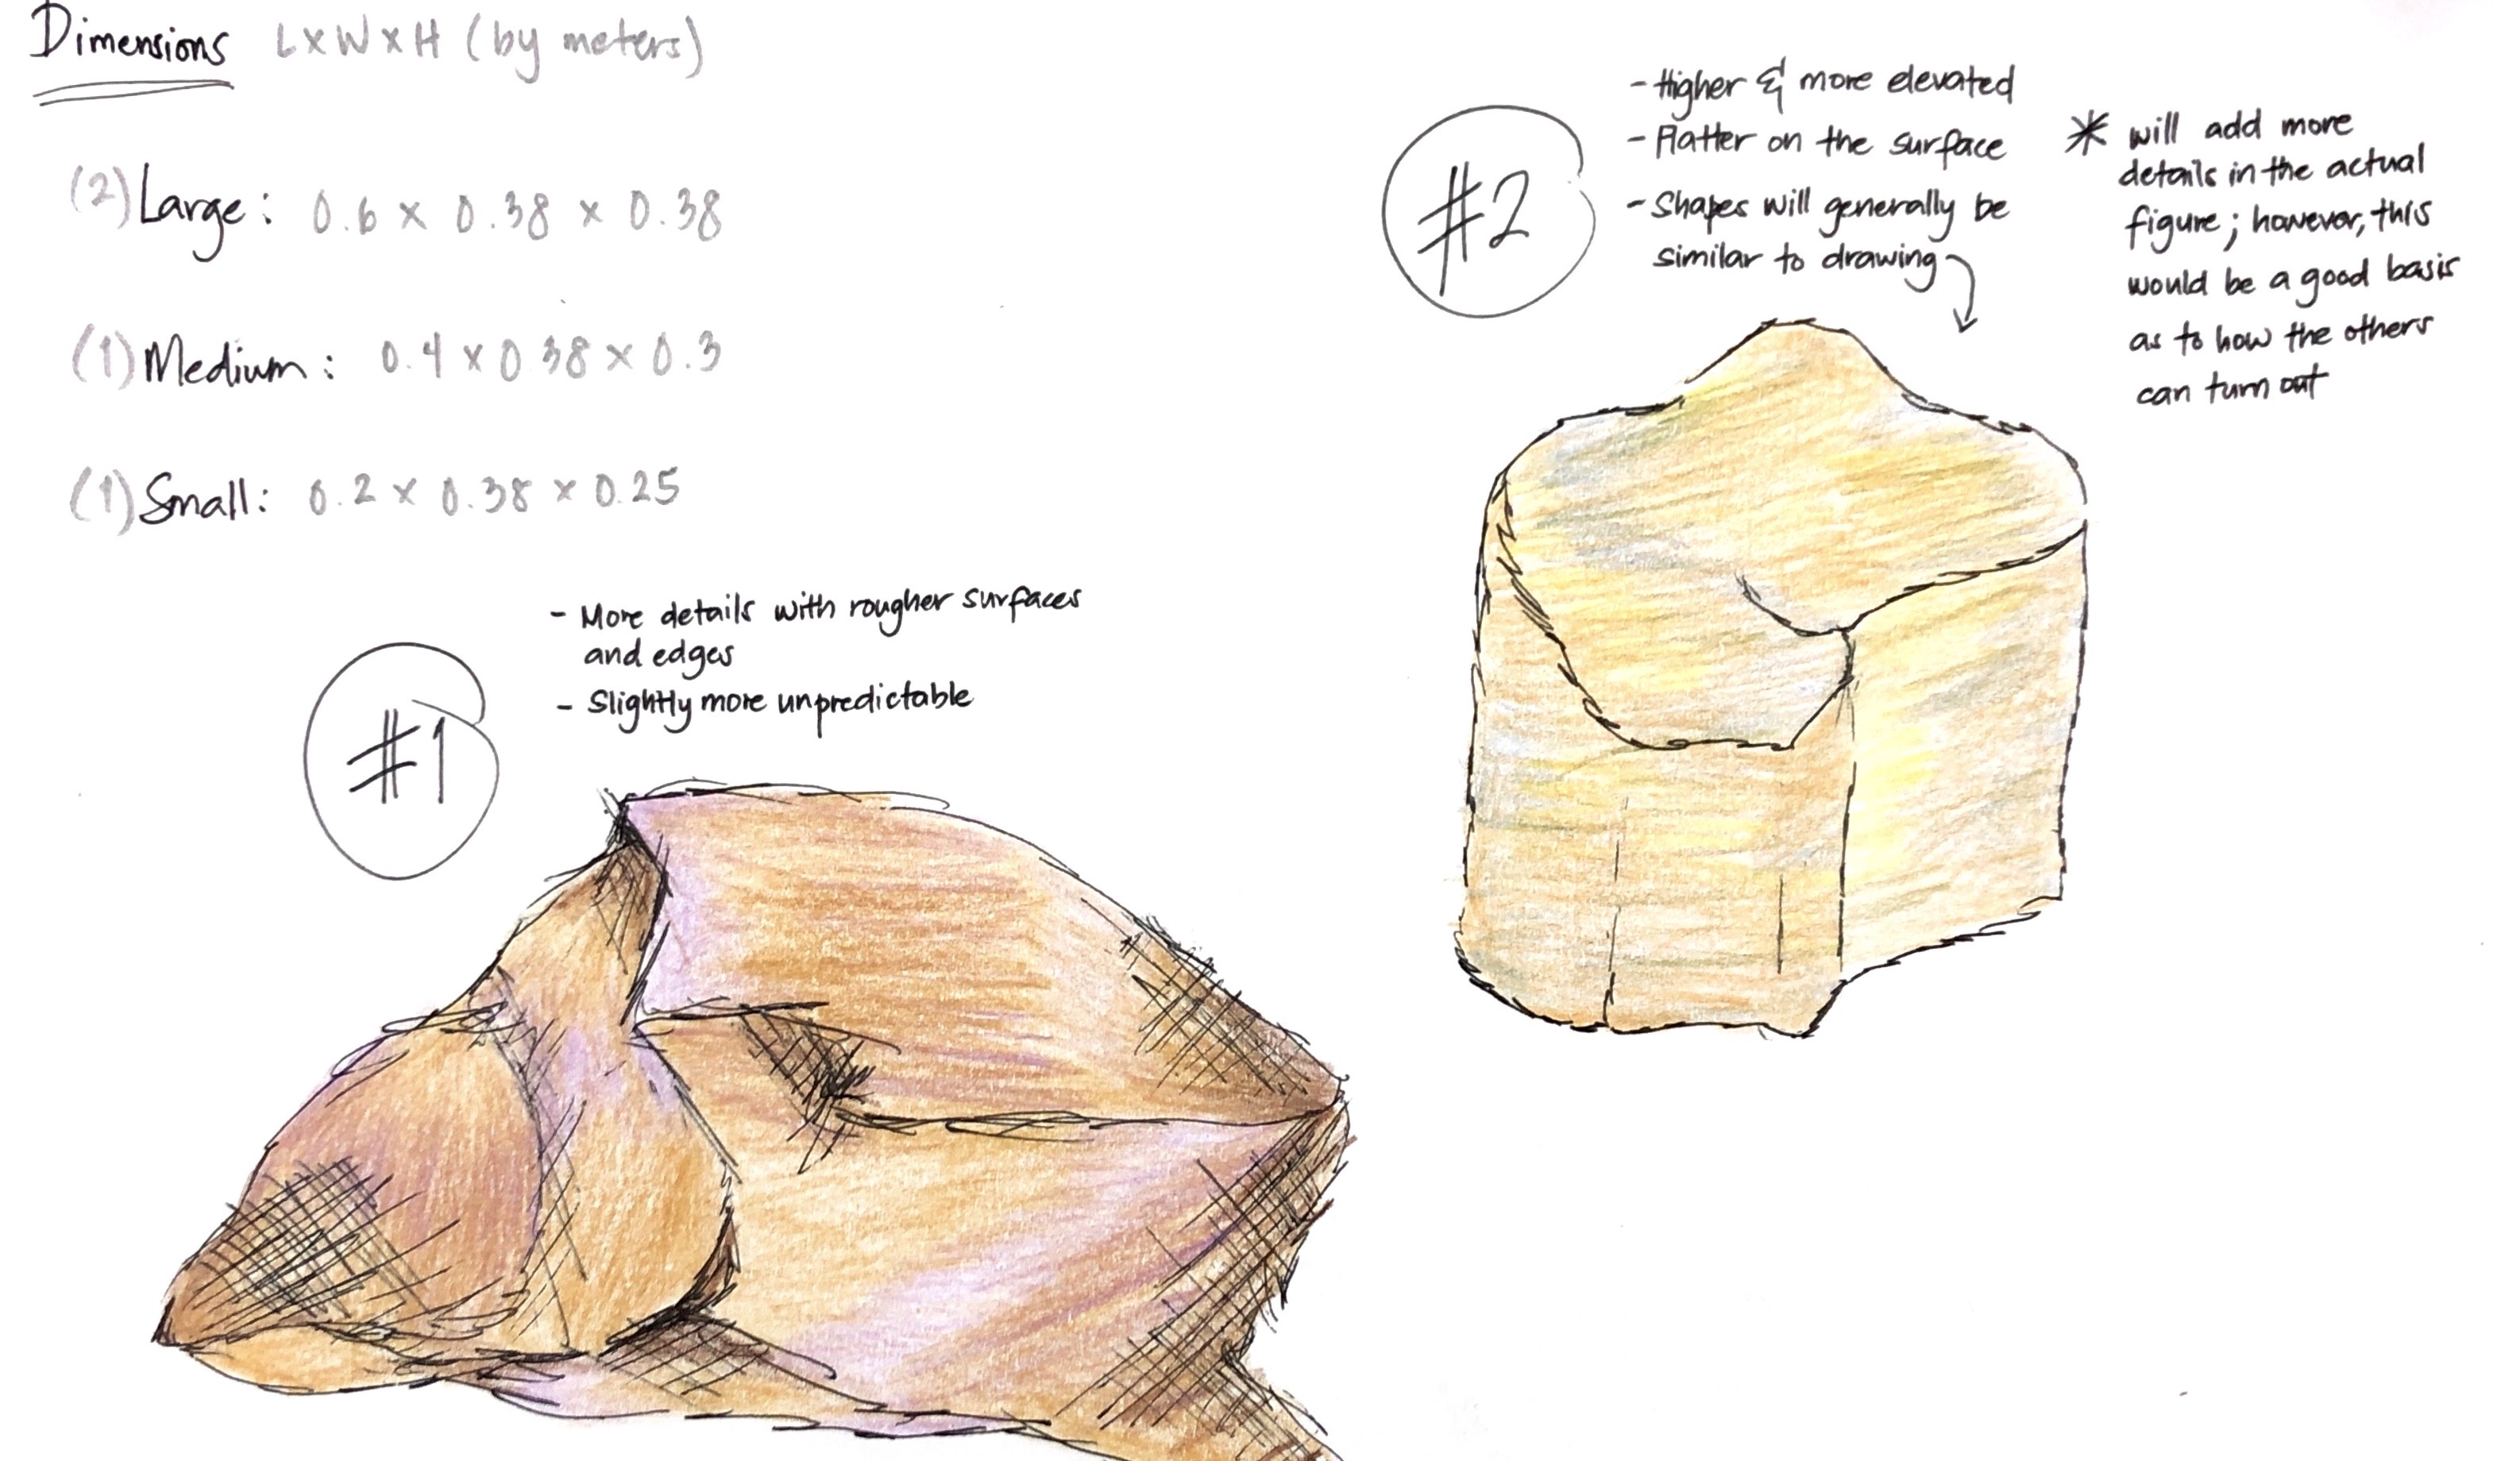 Dimensions L x W x H (by meters)
(2) Large: 0.6 x 0.38 x 0.38
(1) Medium: 0.4 x 0 38 x 0.3
(1) Small: 0.2 x 0.38 x 0.25
#1
- More details with rougher surfaces
and edges
- Slightly more unpredictable
#2
- Higher & more elevated
- Flatter on the surface
- Shapes will generally be
similar to drawing
* will add more
details in the actual
figure; however, this
would be a good basis
as to how the others
can turn out